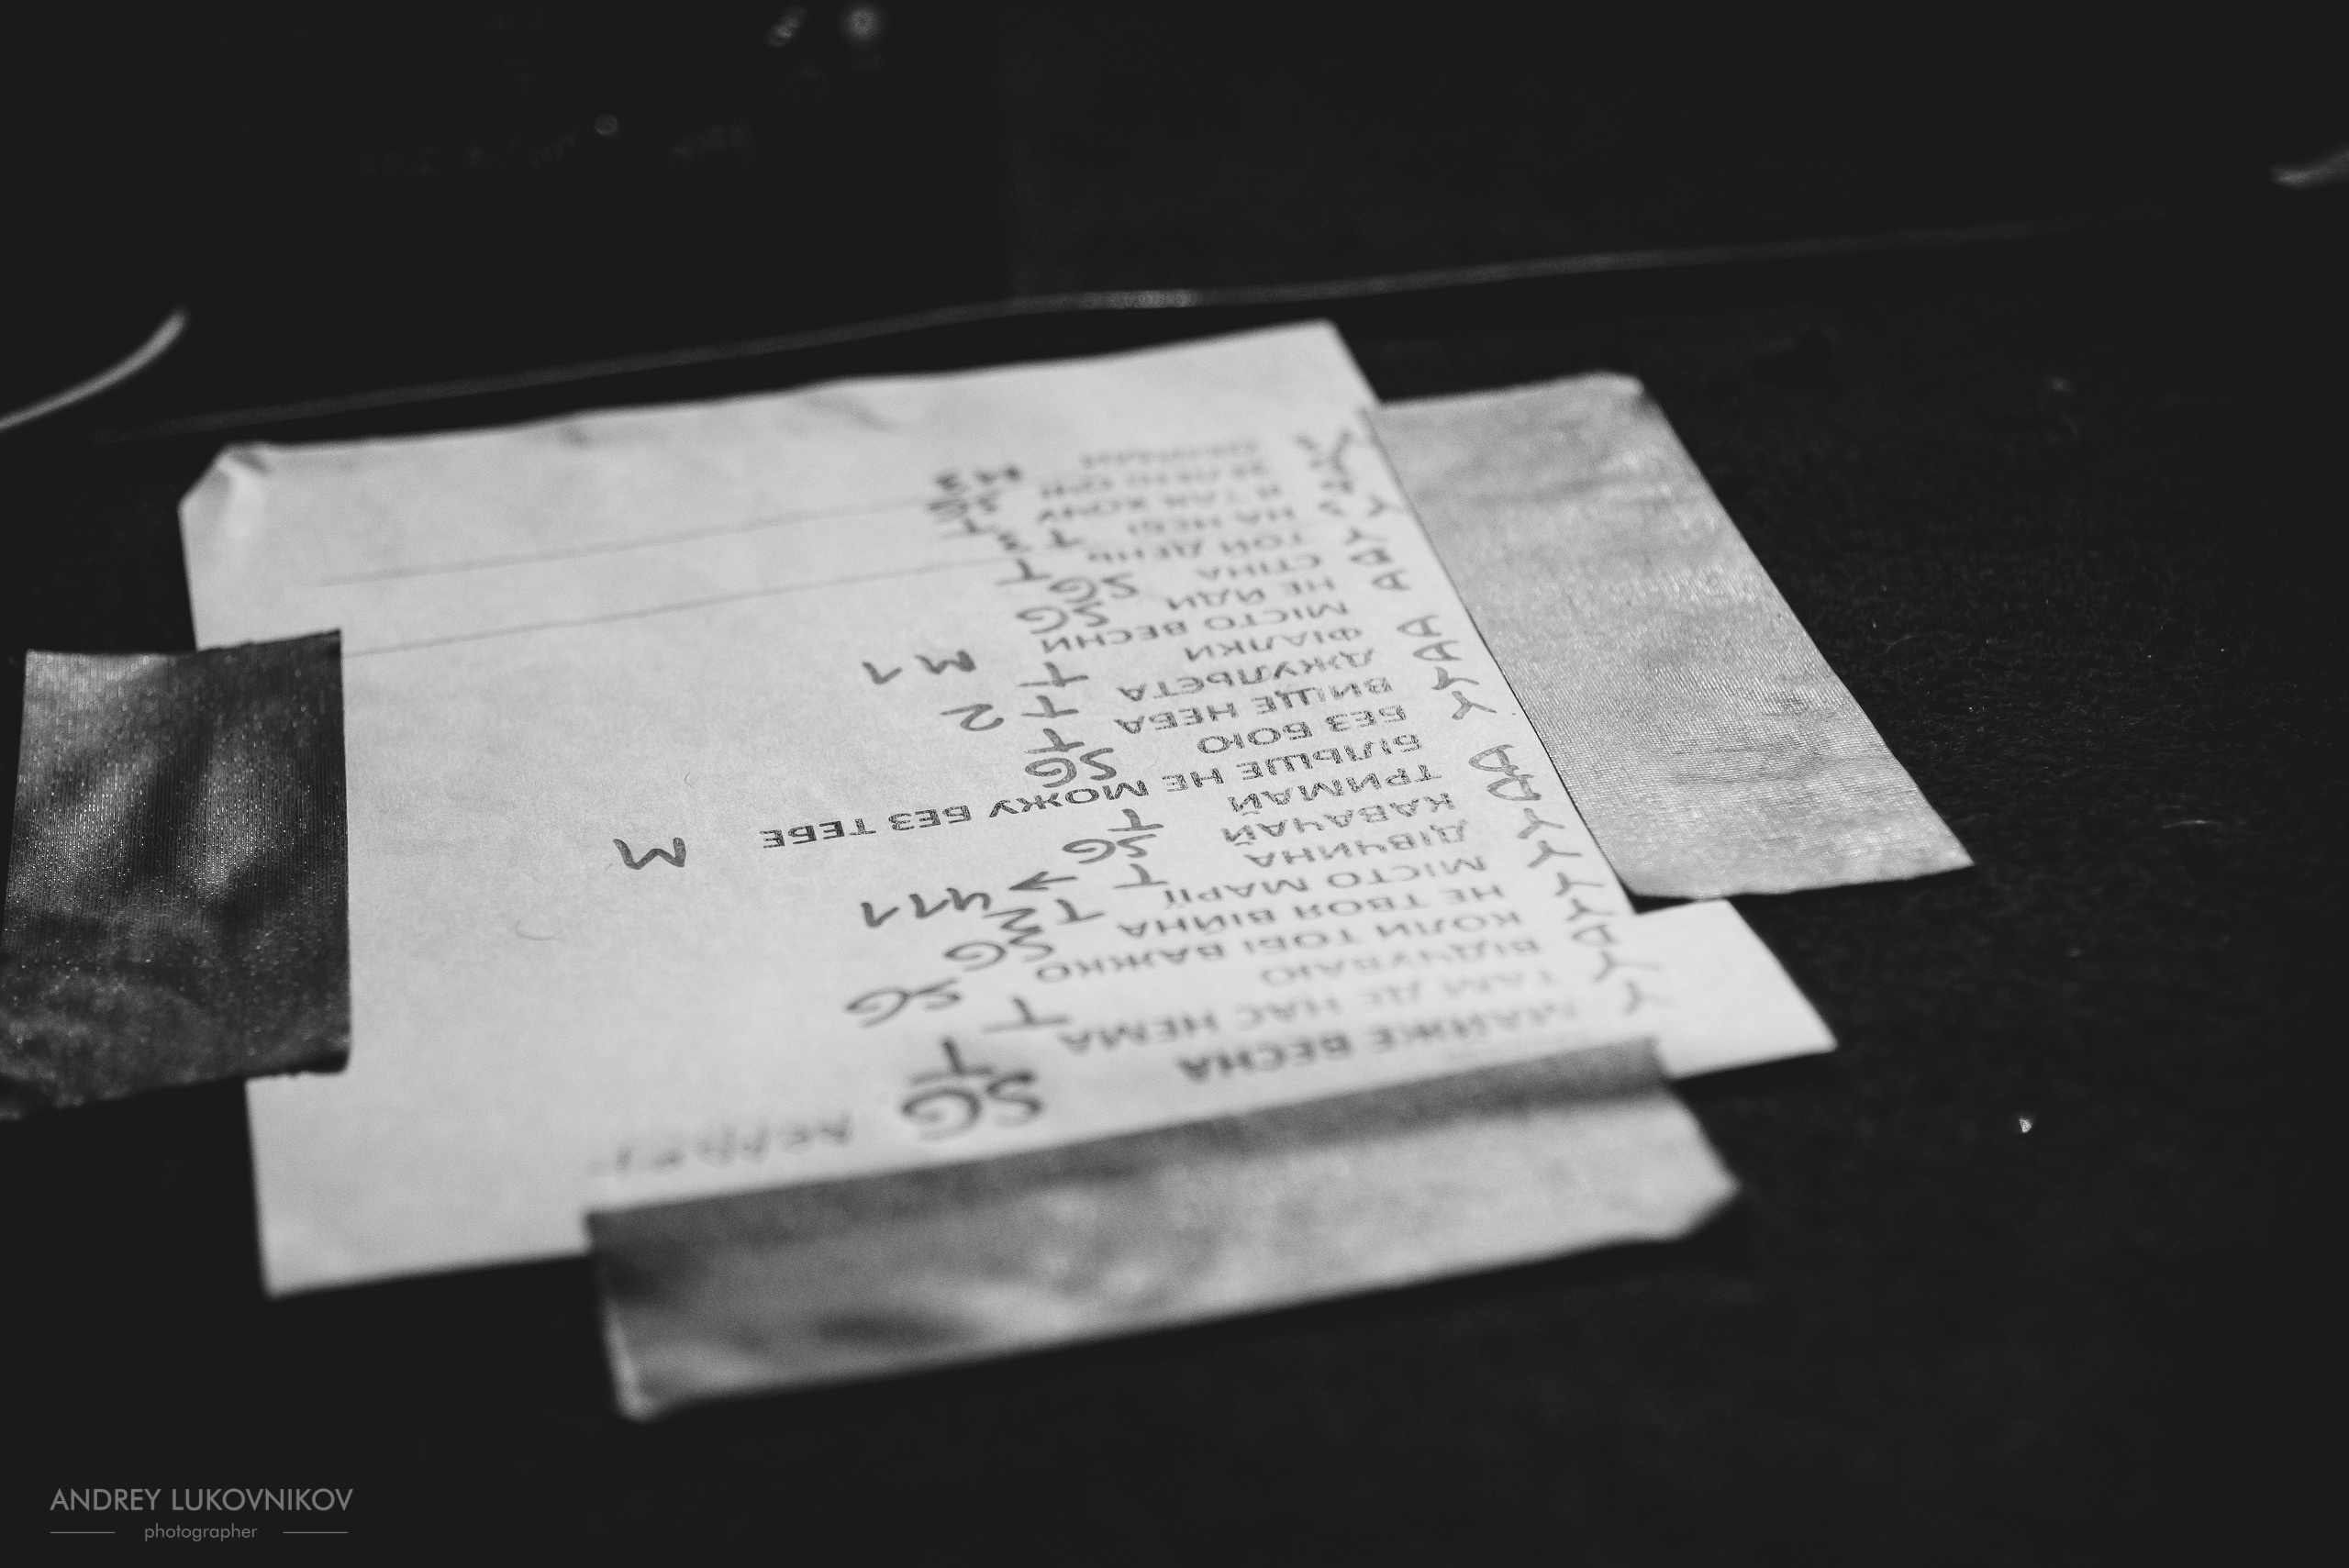 МАЙЖЕ ВЕСНА SG
ТАМ ДЕ НАС НЕМА T
ВІДЧУВАЮ T
КОЛИ ТОБІ ВАЖКО SG
НЕ ТВОЯ ВІЙНА SG
МІСТО МАРІЇ T
ДІВЧИНА T → 411
КАВАЧАЙ SG
ТРИМАЙ T
БІЛЬШЕ НЕ МОЖУ БЕЗ ТЕБЕ M
БЕЗ БОЮ SG
ВИЩЕ НЕБА T
ДЖУЛЬЄТА T 2
ФІАЛКИ T M1
МІСТО ВЕСНИ
НЕ ЙДИ SG
СТІНА SG
ТОЙ ДЕНЬ T
НА НЕБІ T
Я ТАК ХОЧУ
ЗЕЛЕНІ ОЧІ
ANDREY LUKOVNIKOV
photographer